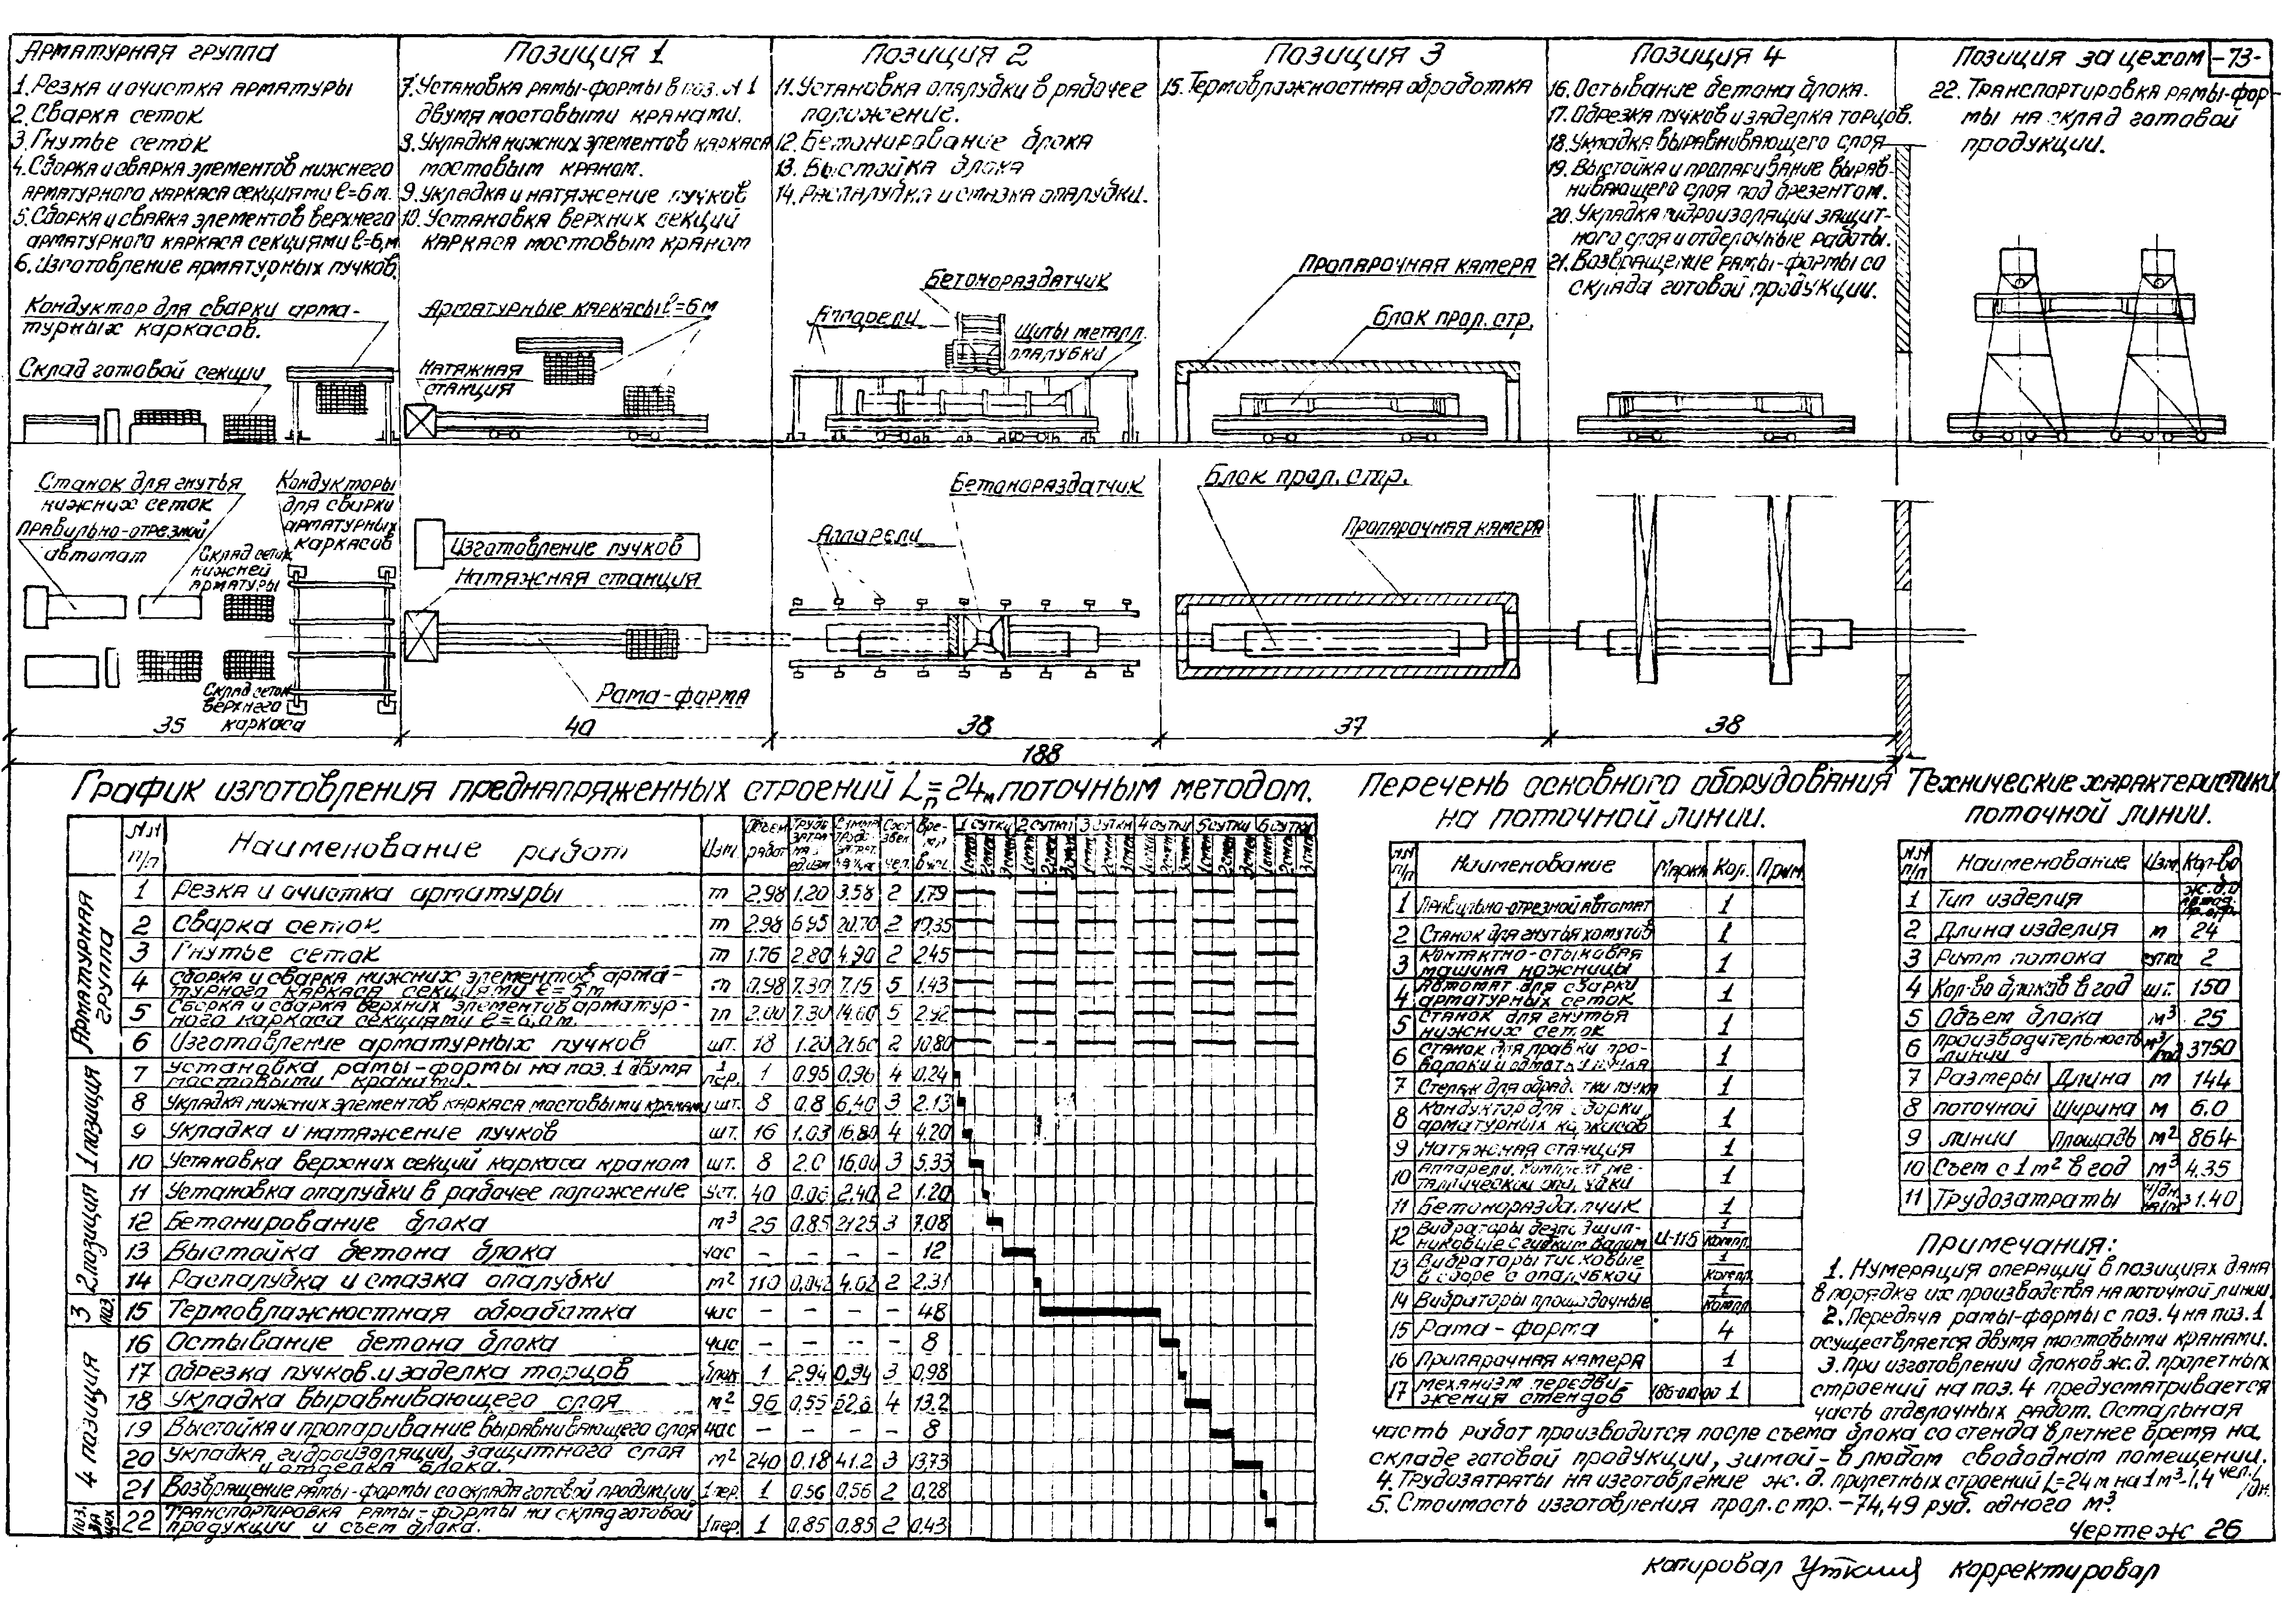 Арматурная группа
1. Резка и очистка арматуры
2. Сварка сеток
3. Гнутье сеток
4. Сборка и сварка элементов нижнего
арматурного каркаса секциями ℓ=6м.
5. Сборка и сварка элементов верхнего
арматурного каркаса секциями ℓ=6м
6. Изготовление арматурных пучков.
Позиция 1
7. Установка рамы-формы в поз. №1
двумя мостовыми кранами.
8. Укладка нижних элементов каркаса
мостовым краном.
9. Укладка и натяжение пучков
10. Установка верхних секций
каркаса мостовым краном
Позиция 2
11. Установка опалубки в рабочее
положение.
12. Бетонирование блока
13. Выстойка блока
14. Распалубка и смазка опалубки.
Позиция 3
15. Термовлажностная обработка
Позиция 4
16. Остывание бетона блока.
17. Обрезка пучков и заделка торцов.
18. Укладка выравнивающего слоя
19. Выстойка и пропаривание вырав-
нивающего слоя под брезентом.
20. Укладка гидроизоляции защит-
ного слоя и отделочные работы.
21. Возвращение рамы-формы со
склада готовой продукции.
Позиция за цехом
-73-
22. Транспортировка рамы-фор-
мы на склад готовой
продукции.
Кондуктор для сварки арма-
турных каркасов.
Склад готовой секции
Арматурные каркасы ℓ=6м
Натяжная
станция
Бетонораздатчик
Аппарели
Щиты металл.
опалубки
Пропарочная камера
Блок прол. стр.
Станок для гнутья
нижних сеток
Правильно-отрезной
автомат
Кондукторы
для сварки
арматурных
каркасов
Склад сеток
нижней
арматуры
Склад сеток
верхнего
каркаса
Изготовление пучков
Натяжная станция
Рама-форма
Аппарели
Бетонораздатчик
Блок прол. стр.
Пропарочная камера
35 40 38 37 38
188
График изготовления преднапряженных строений Lп=24м поточным методом.
№№ п/п Наименование работ Изм.
1 сутки 2 сутки 3 сутки 4 сутки 5 сутки 6 сутки
Арматурная группа
1 Резка и очистка арматуры т 2.98 1.20 3.58 2 1.79
2 Сварка сеток т 2.98 6.95 20.70 2 10,35
3 Гнутье сеток т 1.76 2.80 4.90 2 2.45
4 Сборка и сварка нижних элементов арма-
турного каркаса секциями ℓ= т 0.98 7.30 7.15 5 1.43
5 Сборка и сварка верхних элементов арматур-
ного каркаса секциями ℓ=6,0м. т 2.00 7.30 14.60 5 2.92
6 Изготовление арматурных пучков шт. 18 1.20 21.60 2 10,80
1 позиция
7 Установка рамы-формы на поз. 1 двумя
мостовыми кранами. 1 пер. 1 0.95 0.96 4 0.24
8 Укладка нижних элементов каркаса мостовыми кранами шт. 8 0.8 6,40 3 2.13
9 Укладка и натяжение пучков шт. 16 1.03 16,80 4 4.20
10 Установка верхних секций каркаса краном шт. 8 2.0 16,00 3 5.33
2 позиция
11 Установка опалубки в рабочее положение 40 0.06 2.40 2 1.20
12 Бетонирование блока м³ 25 0.85 21.25 3 7.08
13 Выстойка бетона блока час – – – – 12
14 Распалубка и смазка опалубки м² 110 0,042 4.62 2 2.31
3 поз.
15 Термовлажностная обработка час – – – – 48
4 позиция
16 Остывание бетона блока час – – – – 8
17 Обрезка пучков и заделка торцов блок 1 2.94 0,94 3 0,98
18 Укладка выравнивающего слоя м² 96 0,55 52.8 4 13.2
19 Выстойка и пропаривание выравнивающего слоя час – – – – 8
20 Укладка гидроизоляции, защитного слоя
и отделка блока. м² 240 0.18 41.2 3 13.73
21 Возвращение рамы-формы со склада готовой продукции 1 пер. 1 0.56 0,56 2 0,28
Поз. за цех
22 Транспортировка рамы-формы на склад готовой
продукции и съем блока. 1 пер. 1 0.85 0.85 2 0.43
Перечень основного оборудования
на поточной линии.
№№ п/п Наименование Марка Кол. Прим.
1 Правильно-отрезной автомат 1
2 Станок для гнутья хомутов 1
3 Контактно-стыковая
машина ножницы 1
4 Автомат для сварки
арматурных сеток 1
5 Станок для гнутья
нижних сеток 1
6 Станок для правки про-
волоки 1
7 1
8 Кондуктор для сборки
арматурных каркасов 1
9 Натяжная станция 1
10 Аппарели, комплект ме-
таллической опалубки 1
11 Бетонораздатчик 1
12 Вибраторы
с гибким валом И-116 1 компл.
13 Вибраторы тисковые
в сборе с опалубкой 1 компл.
14 Вибраторы площадочные 1 компл.
15 Рама-форма 4
16 Припарочная камера 1
17 Механизм передви-
жения стендов 1
Технические характеристики
поточной линии.
№№ п/п Наименование Изм Кол-во
1 Тип изделия
2 Длина изделия м 24
3 Ритм потока сутки 2
4 Кол-во блоков в год шт. 150
5 Объем блока м³ 25
6 Производительность
линии м³/год 3750
7 Размеры Длина м 144
8 поточной Ширина м 6.0
9 линии Площадь м² 864
10 Съем с 1м² в год м³ 4.35
11 Трудозатраты 1.40
Примечания:
1. Нумерация операций в позициях дана
в порядке их производства на поточной линии.
2. Передача рамы-формы с поз. 4 на поз. 1
осуществляется двумя мостовыми кранами.
3. При изготовлении блоков ж.д. пролетных
строений на поз. 4 предусматривается
часть отделочных работ. Остальная
часть работ производится после съема блока со стенда в летнее время на
складе готовой продукции, зимой - в любом свободном помещении.
4. Трудозатраты на изготовление ж.д. пролетных строений L=24м на 1м³-1,4 чел./дн.
5. Стоимость изготовления прол. стр. - 74,49 руб. одного м³.
Чертеж 26
копировал Уткина корректировал